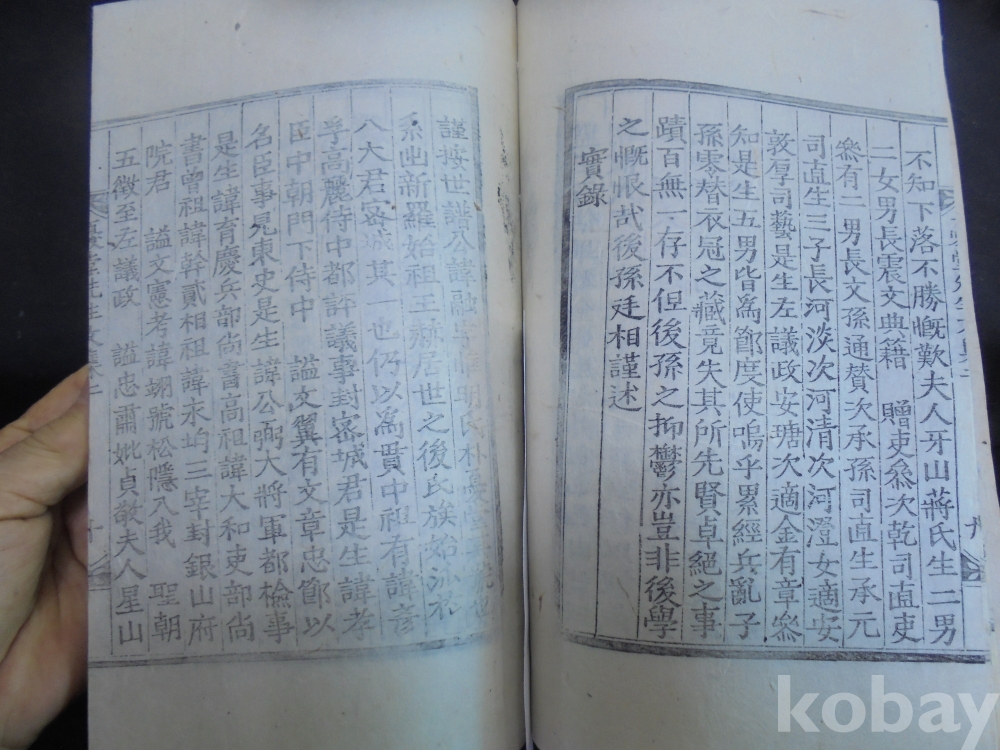 不知下落不勝慨歎夫人牙山蔣氏生二男
二女男長震文典籍 贈吏叅次乾司直吏
叅有二男長文孫通贊次承孫司直生承元
司直生三子長河淡次河清次河澄女適安
敦厚司藝是生左議政安瑭次適金有章叅
知是生五男皆爲節度使嗚乎累經兵亂子
孫零替衣冠之藏竟失其所先賢卓絕之事
蹟百無一存不但後孫之抑鬱亦豈非後學
之慨恨哉後孫廷相謹述
實錄
謹按世譜公諱融字 明氏朴憂堂
系出新羅始祖王赫居世之後氏族始
八大君密城其一也仍以爲貫中祖有諱彥
孚高麗侍中都評議事封密城君是生諱孝
臣中朝門下侍中 謚文翼有文章忠節以
名臣事見東史是生諱公弼大將軍都檢事
是生諱育慶兵部尙書高祖諱大和吏部尙
書曾祖諱幹貳相祖諱永均三宰封銀山府
院君 謚文憲考諱翊號松隱入我 聖朝
五徵至左議政 謚忠肅妣貞敬夫人星山
kobay